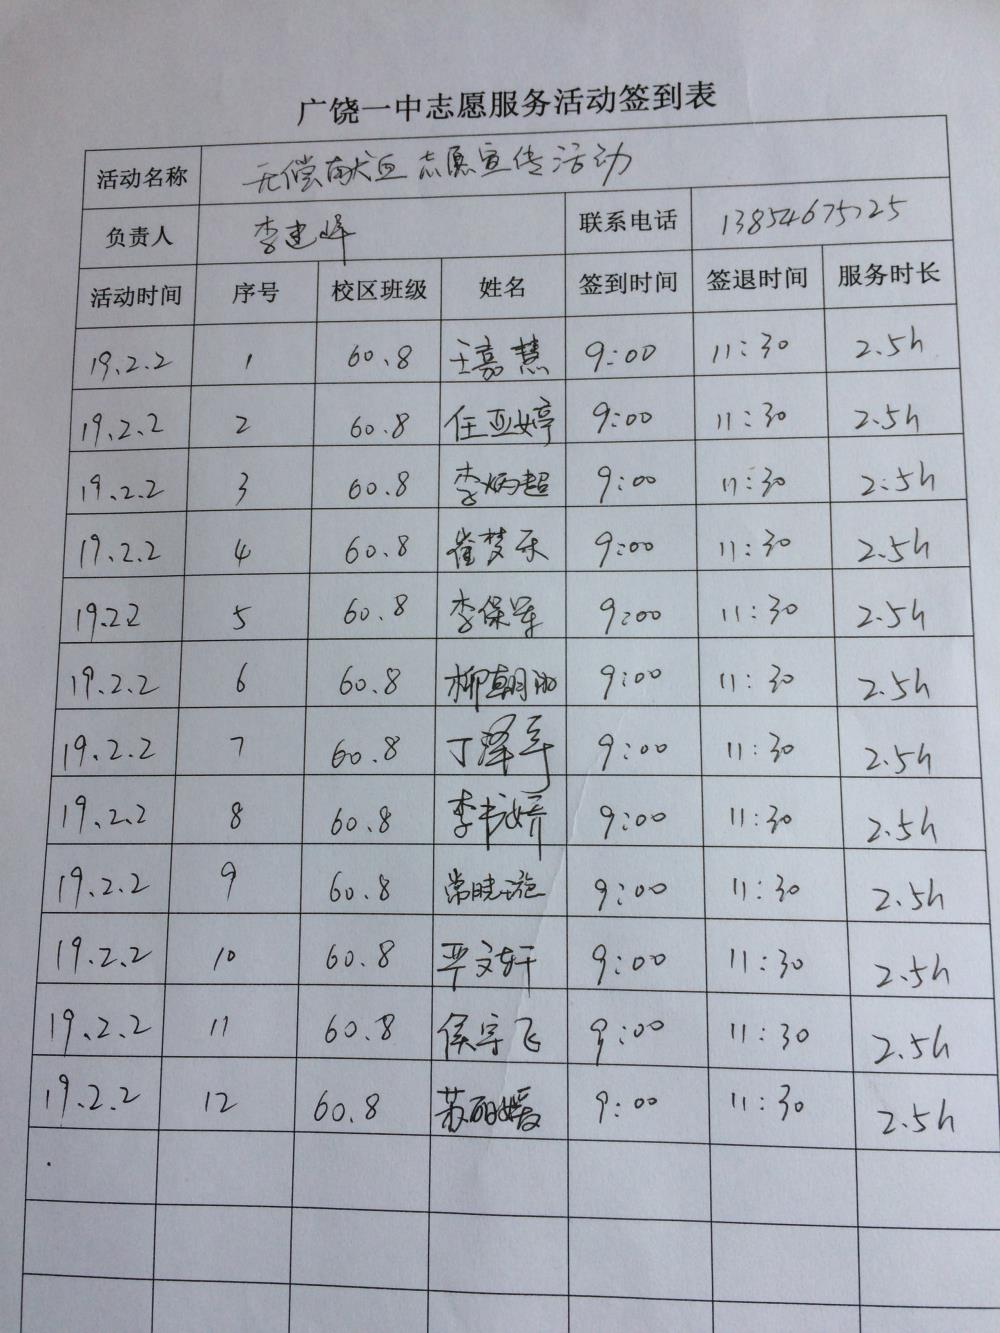 广饶一中志愿服务活动签到表
活动名称 无偿献血志愿宣传活动
负责人 李建峰 联系电话 13854675725
活动时间 序号 校区班级 姓名 签到时间 签退时间 服务时长
19.2.2 1 60.8 王嘉慧 9:00 11:30 2.5h
19.2.2 2 60.8 任亚婷 9:00 11:30 2.5h
19.2.2 3 60.8 李炳超 9:00 11:30 2.5h
19.2.2 4 60.8 崔梦乐 9:00 11:30 2.5h
19.2.2 5 60.8 李保军 9:00 11:30 2.5h
19.2.2 6 60.8 柳朝 9:00 11:30 2.5h
19.2.2 7 60.8 丁泽军 9:00 11:30 2.5h
19.2.2 8 60.8 李书娇 9:00 11:30 2.5h
19.2.2 9 60.8 常晓璇 9:00 11:30 2.5h
19.2.2 10 60.8 文轩 9:00 11:30 2.5h
19.2.2 11 60.8 侯宇飞 9:00 11:30 2.5h
19.2.2 12 60.8 苏丽媛 9:00 11:30 2.5h